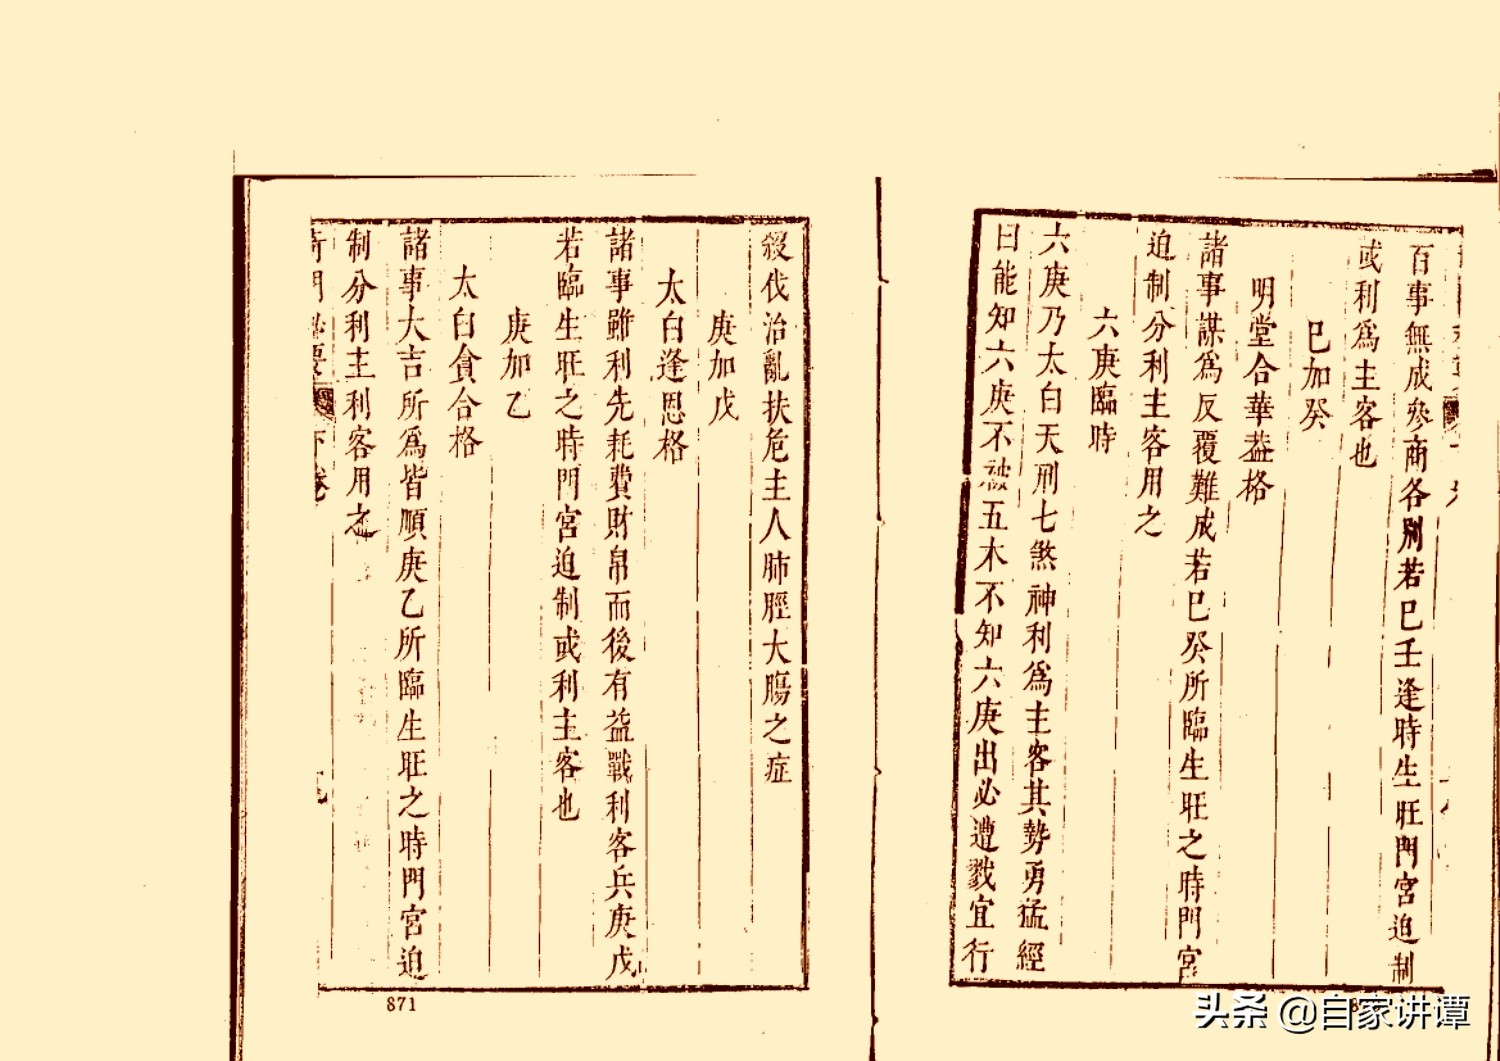 百事無成參商各別若巳壬逢時生旺門宮迫制
或利爲主客也
巳加癸
明堂合華葢格
諸事謀爲反覆難成若巳癸所臨生旺之時門宮
迫制分利主客用之
六庚臨時
六庚乃太白天刑七煞神利爲主客其勢勇猛經
曰能知六庚不被五木不知六庚出必遭戮宜行
殺伐治亂扶危主人肺脛大腸之症
庚加戊
太白逢恩格
諸事雖利先耗費財帛而後有益戰利客兵庚戊
若臨生旺之時門宮迫制或利主客也
庚加乙
太白貪合格
諸事大吉所爲皆順庚乙所臨生旺之時門宮迫
制分利主利客用之
奇門 要 下卷
871
头条 @自家讲谭